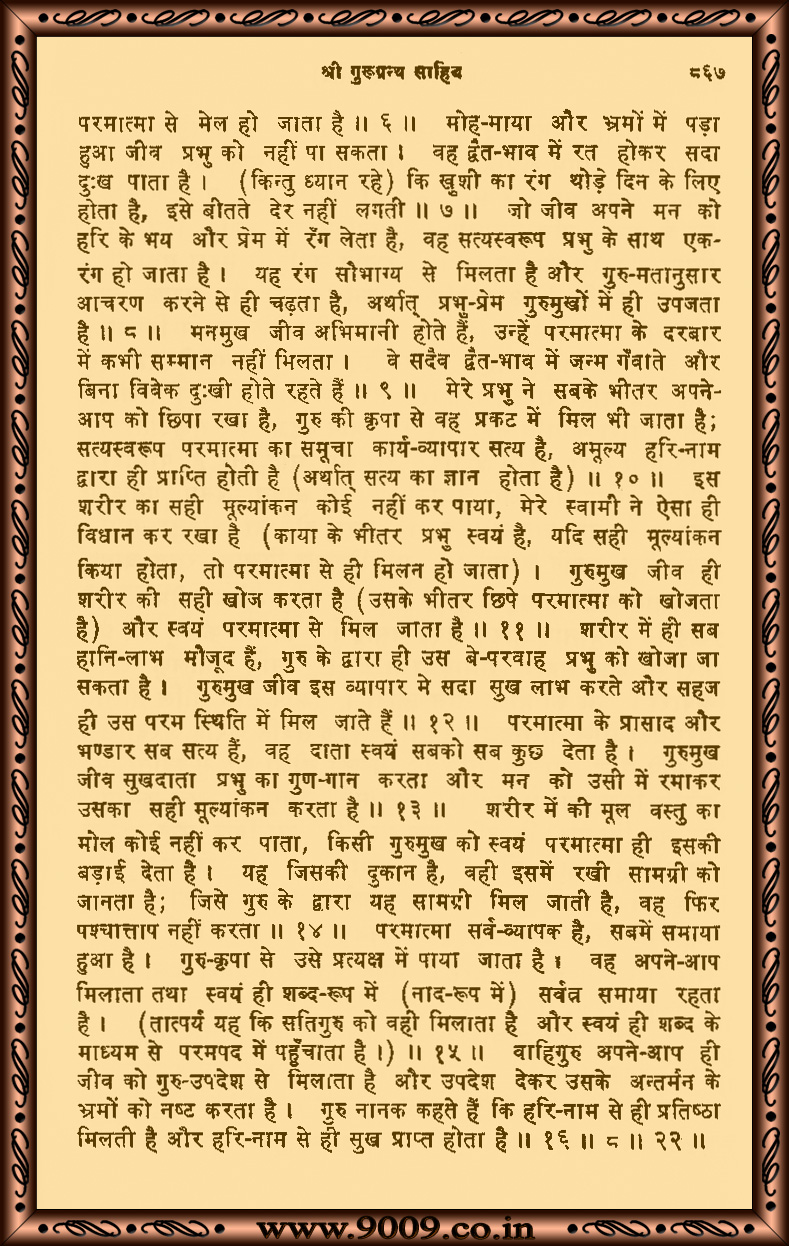 श्री गुरूग्रन्थ साहिब ८६७
परमात्मा से मेल हो जाता है ॥ ६ ॥ मोह-माया और भ्रमों में पड़ा
हुआ जीव प्रभु को नहीं पा सकता । वह द्वैत-भाव में रत होकर सदा
दुःख पाता है । (किन्तु ध्यान रहे) कि खुशी का रंग थोड़े दिन के लिए
होता है, इसे बीतते देर नहीं लगती ॥ ७ ॥ जो जीव अपने मन को
हरि के भय और प्रेम में रँग लेता है, वह सत्यस्वरूप प्रभु के साथ एक-
रंग हो जाता है । यह रंग सौभाग्य से मिलता है और गुरु-मतानुसार
आचरण करने से ही चढ़ता है, अर्थात् प्रभु-प्रेम गुरुमुखों में ही उपजता
है ॥ ८ ॥ मनमुख जीव अभिमानी होते हैं, उन्हें परमात्मा के दरबार
में कभी सम्मान नहीं मिलता । वे सदैव द्वैत-भाव में जन्म गँवाते और
बिना विवेक दुःखी होते रहते हैं ॥ ९ ॥ मेरे प्रभु ने सबके भीतर अपने-
आप को छिपा रखा है, गुरु की कृपा से वह प्रकट में मिल भी जाता है;
सत्यस्वरूप परमात्मा का समूचा कार्य-व्यापार सत्य है, अमूल्य हरि-नाम
द्वारा ही प्राप्ति होती है (अर्थात् सत्य का ज्ञान होता है) ॥ १० ॥ इस
शरीर का सही मूल्यांकन कोई नहीं कर पाया, मेरे स्वामी ने ऐसा ही
विधान कर रखा है (काया के भीतर प्रभु स्वयं है, यदि सही मूल्यांकन
किया होता, तो परमात्मा से ही मिलन हो जाता) । गुरुमुख जीव ही
शरीर की सही खोज करता है (उसके भीतर छिपे परमात्मा को खोजता
है) और स्वयं परमात्मा से मिल जाता है ॥ ११ ॥ शरीर में ही सब
हानि-लाभ मौजूद हैं, गुरु के द्वारा ही उस बे-परवाह प्रभु को खोजा जा
सकता है । गुरुमुख जीव इस व्यापार मे सदा सुख लाभ करते और सहज
ही उस परम स्थिति में मिल जाते हैं ॥ १२ ॥ परमात्मा के प्रासाद और
भण्डार सब सत्य हैं, वह दाता स्वयं सबको सब कुछ देता है । गुरुमुख
जीव सुखदाता प्रभु का गुण-गान करता और मन को उसी में रमाकर
उसका सही मूल्यांकन करता है ॥ १३ ॥ शरीर में की मूल वस्तु का
मोल कोई नहीं कर पाता, किसी गुरुमुख को स्वयं परमात्मा ही इसकी
बड़ाई देता है । यह जिसकी दुकान है, वही इसमें रखी सामग्री को
जानता है; जिसे गुरु के द्वारा यह सामग्री मिल जाती है, वह फिर
पश्चात्ताप नहीं करता ॥ १४ ॥ परमात्मा सर्व-व्यापक है, सबमें समाया
हुआ है । गुरु-कृपा से उसे प्रत्यक्ष में पाया जाता है । वह अपने-आप
मिलाता तथा स्वयं ही शब्द-रूप में (नाद-रूप में) सर्वत्र समाया रहता
है । (तात्पर्य यह कि सतिगुरु को वही मिलाता है और स्वयं ही शब्द के
माध्यम से परमपद में पहुँचाता है ।) ॥ १५ ॥ वाहिगुरु अपने-आप ही
जीव को गुरु-उपदेश से मिलाता है और उपदेश देकर उसके अन्तर्मन के
भ्रमों को नष्ट करता है । गुरु नानक कहते हैं कि हरि-नाम से ही प्रतिष्ठा
मिलती है और हरि-नाम से ही सुख प्राप्त होता है ॥ १६ ॥ ८ ॥ २२ ॥
www.9009.co.in